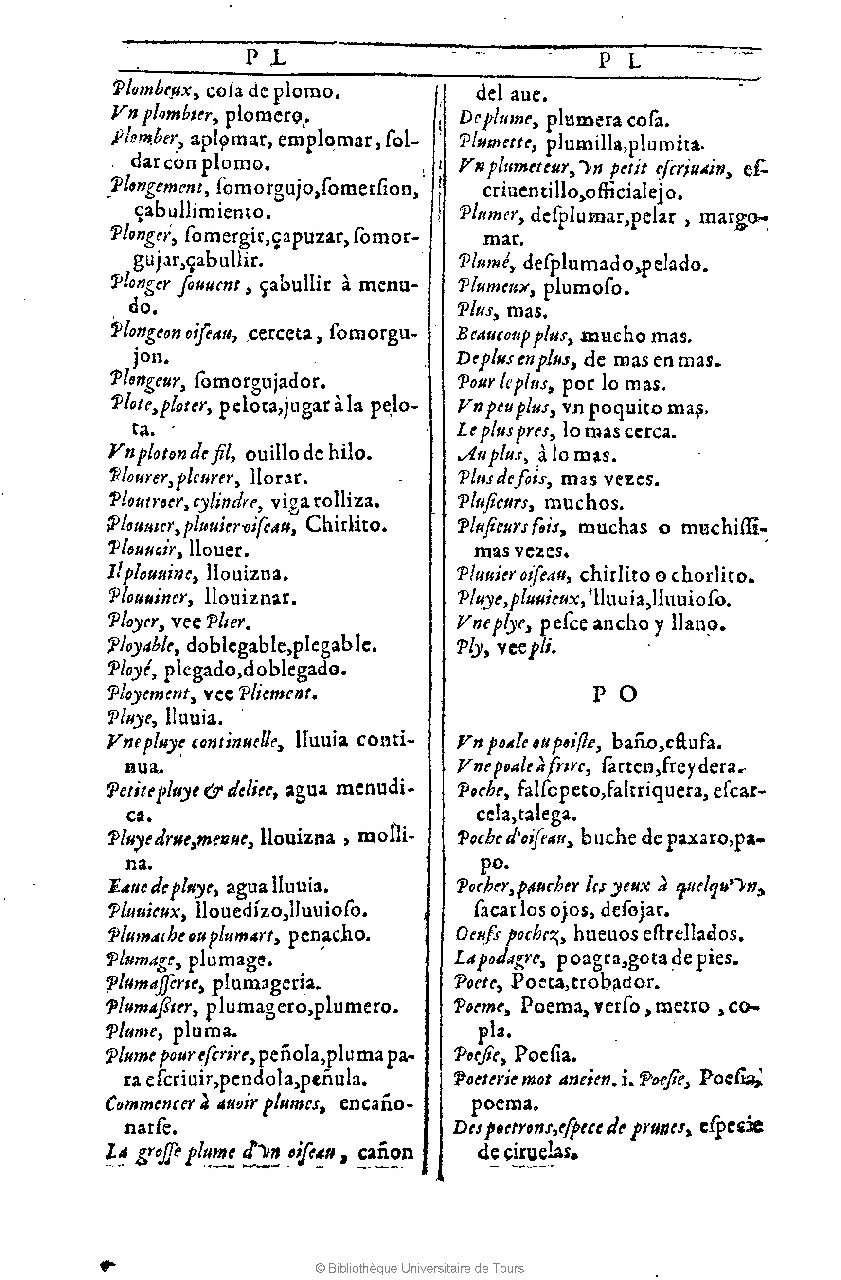 P L
Plombeux, cosa de plomo.
Vn plombier, plomero.
Plomber, aplomar, emplomar, ſol-
dar con plomo.
Plongement, ſomorgujo,ſomerſion,
çabullimiento.
Plonger, ſomergir,çapuzar, ſomor-
gujar,çabullir.
Plonger ſouuent, çabullir à menu-
do.
Plongeon oiſeau, cerceta, ſomorgu-
jon.
Plongeur, ſomorgujador.
Plote,ploter, pelota,jugar à la pelo-
ta.
Vn ploton de fil, ouillo de hilo.
Plourer,pleurer, llorar.
Ploutroer,cylindre, viga rolliza.
Plouuier,pluuier oiſeau, Chirlito.
Plouuoir, llouer.
Il plouuine, llouizna.
Plouuiner, llouiznar.
Ployer, vee Plier.
Ployable, doblegable,plegable.
Ployé, plegado,doblegado.
Ployement, vee Pliement.
Pluye, lluuia.
Vne pluye continuelle, lluuia conti-
nua.
Petite pluye & deliee, agua menudi-
ca.
Pluye drue,menue, llouizna, molli-
na.
Eaue de pluye, agua lluuia.
Pluuieux, llouedízo,lluuioſo.
Plumache ou plumart, penacho.
Plumage, plumage.
Plumaſſerie, plumageria.
Plumaſsier, plumagero,plumero.
Plume, pluma.
Plume pour eſcrire, peñola,pluma pa-
ra eſcriuir,pendola,peñula.
Commencer à auoir plumes, encaño-
narſe.
La groſſe plume d'vn oiſeau, cañon
P L
del aue.
De plume, plumera coſa.
Plumette, plumilla,plumita.
Vn plumeteur,vn petit eſcriuain, eſ-
criuentillo,officialejo.
Plumer, deſplumar,pelar, margo-
mar.
Plumé, deſplumado,pelado.
Plumeux, plumoſo.
Plus, mas.
Beaucoup plus, mucho mas.
De plus en plus, de mas en mas.
Pour le plus, por lo mas.
Vn peu plus, vn poquito mas.
Le plus pres, lo mas cerca.
Au plus, à lo mas.
Plus de fois, mas vezes.
Pluſieurs, muchos.
Pluſieurs fois, muchas o muchiſſi-
mas vezes.
Pluuier oiſeau, chirlito o chorlito.
Pluye,pluuieux, lluuia,lluuioſo.
Vne plye, peſce ancho y llano.
Ply, vee pli.
P O
Vn poale ou poiſle, baño,eſtufa.
Vne poale à frire, ſarten,freydera.
Poche, falſopeto,faltriquera, eſcar-
cela,talega.
Poche d'oiſeau, buche de paxaro,pa-
po.
Pocher,paucher les yeux à quelqu'vn,
ſacar los ojos, deſojar.
Oeufs pochez, hueuos eſtrellados.
La podagre, poagra,gota de pies.
Poete, Poeta,trobador.
Poeme, Poema, verſo, metro, co-
pla.
Poeſie, Poeſia.
Poeterie mot ancien. i. Poeſie, Poeſia,
poema.
Des poetrons,eſpece de prunes, eſpecie
de çiruelas.
© Bibliothèque Universitaire de Tours